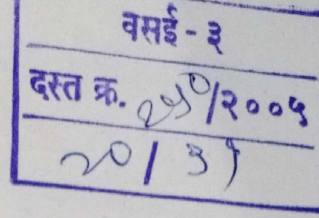 वसई - ३
दस्त क्र. २५०/२००५
२० / ३१